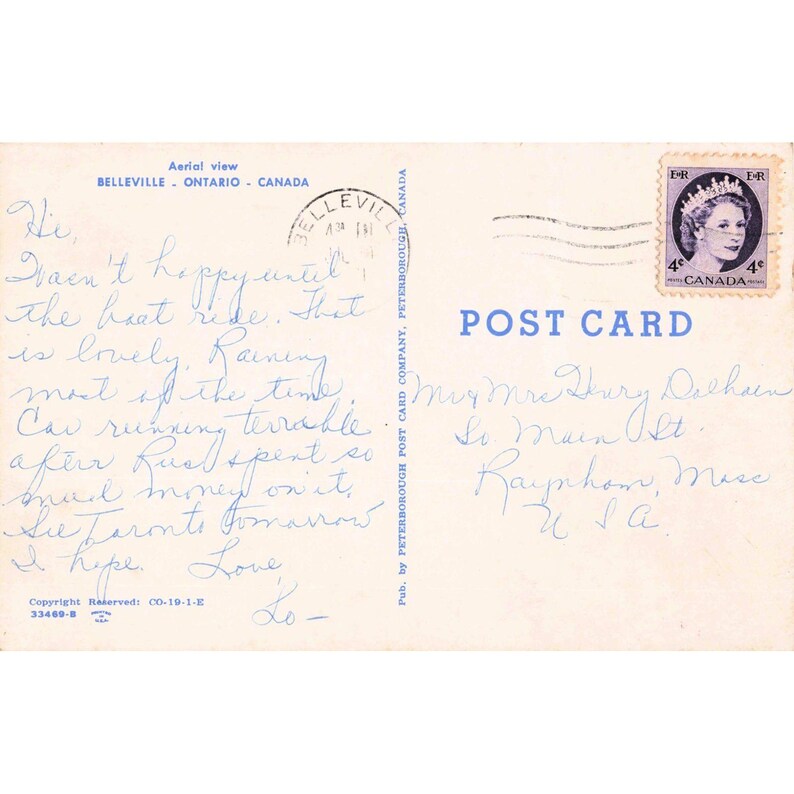 Aerial view
BELLEVILLE - ONTARIO - CANADA
Hi,
Wasn't happy until
the boat ride. That
is lovely. Raining
most of the time.
Car running terrable
after Rus spent so
much money on it.
See Toronto tomorrow
I hope. Love,
Lo -
Copyright Reserved: CO-19-1-E
33469-B
PRINTED
IN
U.S.A.
Pub. by PETERBOROUGH POST CARD COMPANY, PETERBOROUGH, CANADA
BELLEVILL
EIIR EIIR
4¢ 4¢
POSTES CANADA POSTAGE
POST CARD
Mr & Mrs Henry Dalhaen
So. Main St.
Raynham, Mass
U S A.